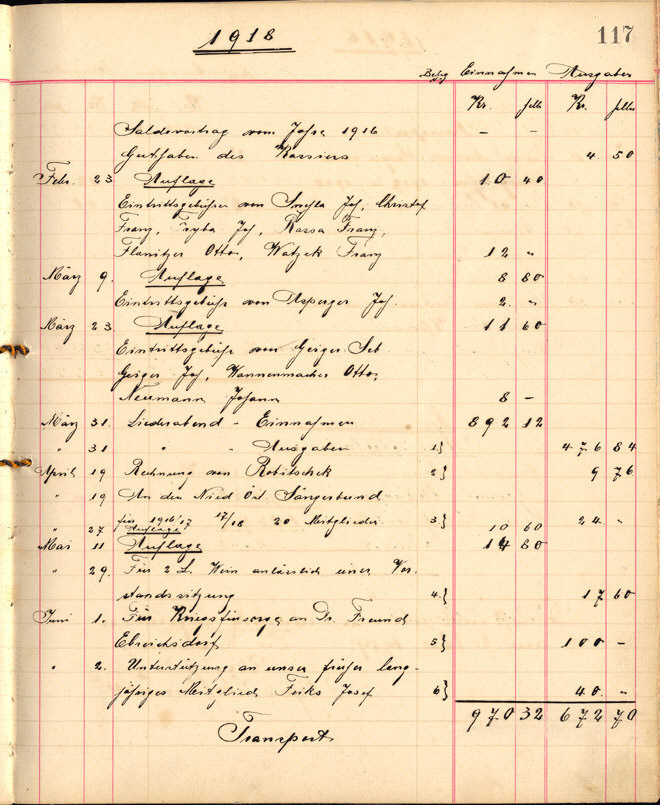 1918
117
Beleg Einnahmen Ausgaben
Kr. Helle Kr. Heller
Saldovortrag vom Jahre 1916 – –
Guthaben des Kassiers 4 50
Febr. 23 Auflage 10 40
Eintrittsgebühren von Joh, Christof
Franz, Fryba Joh, Kassa Franz,
Flanitzer Otto, Watzek Franz 12 "
März 9. Auflage 8 80
Eintrittsgebühr von Asperger Joh 2. "
März 23 Auflage 11 60
Eintrittsgebühr von Geiger Seb
Geiger Joh, Wannenmacher Otto,
Neumann Johann 8 –
März 31. Liederabend - Einnahmen 892 12
" 31 " - Ausgaben 1} 476 84
April 19 Rechnung von Robitschek 2} 9 76
" 19 An den Nied. Öst. Sängerbund
für 1916/17 17/18 20 Mitglieder 3} 24 "
" 27 Auflage 10 60
Mai 11 Auflage 14 80
" 29. Für 2 L. Wein anlässlich einer Vor-
standssitzung 4} 17 60
Juni 1. Für Kriegsfürsorge an Dr. Freund
Ebreichsdorf 5} 100 –
" 2. Unterstützung an unser früher lang-
jähriges Mitglied Feiks Josef 6} 40. "
970 32 672 70
Transport